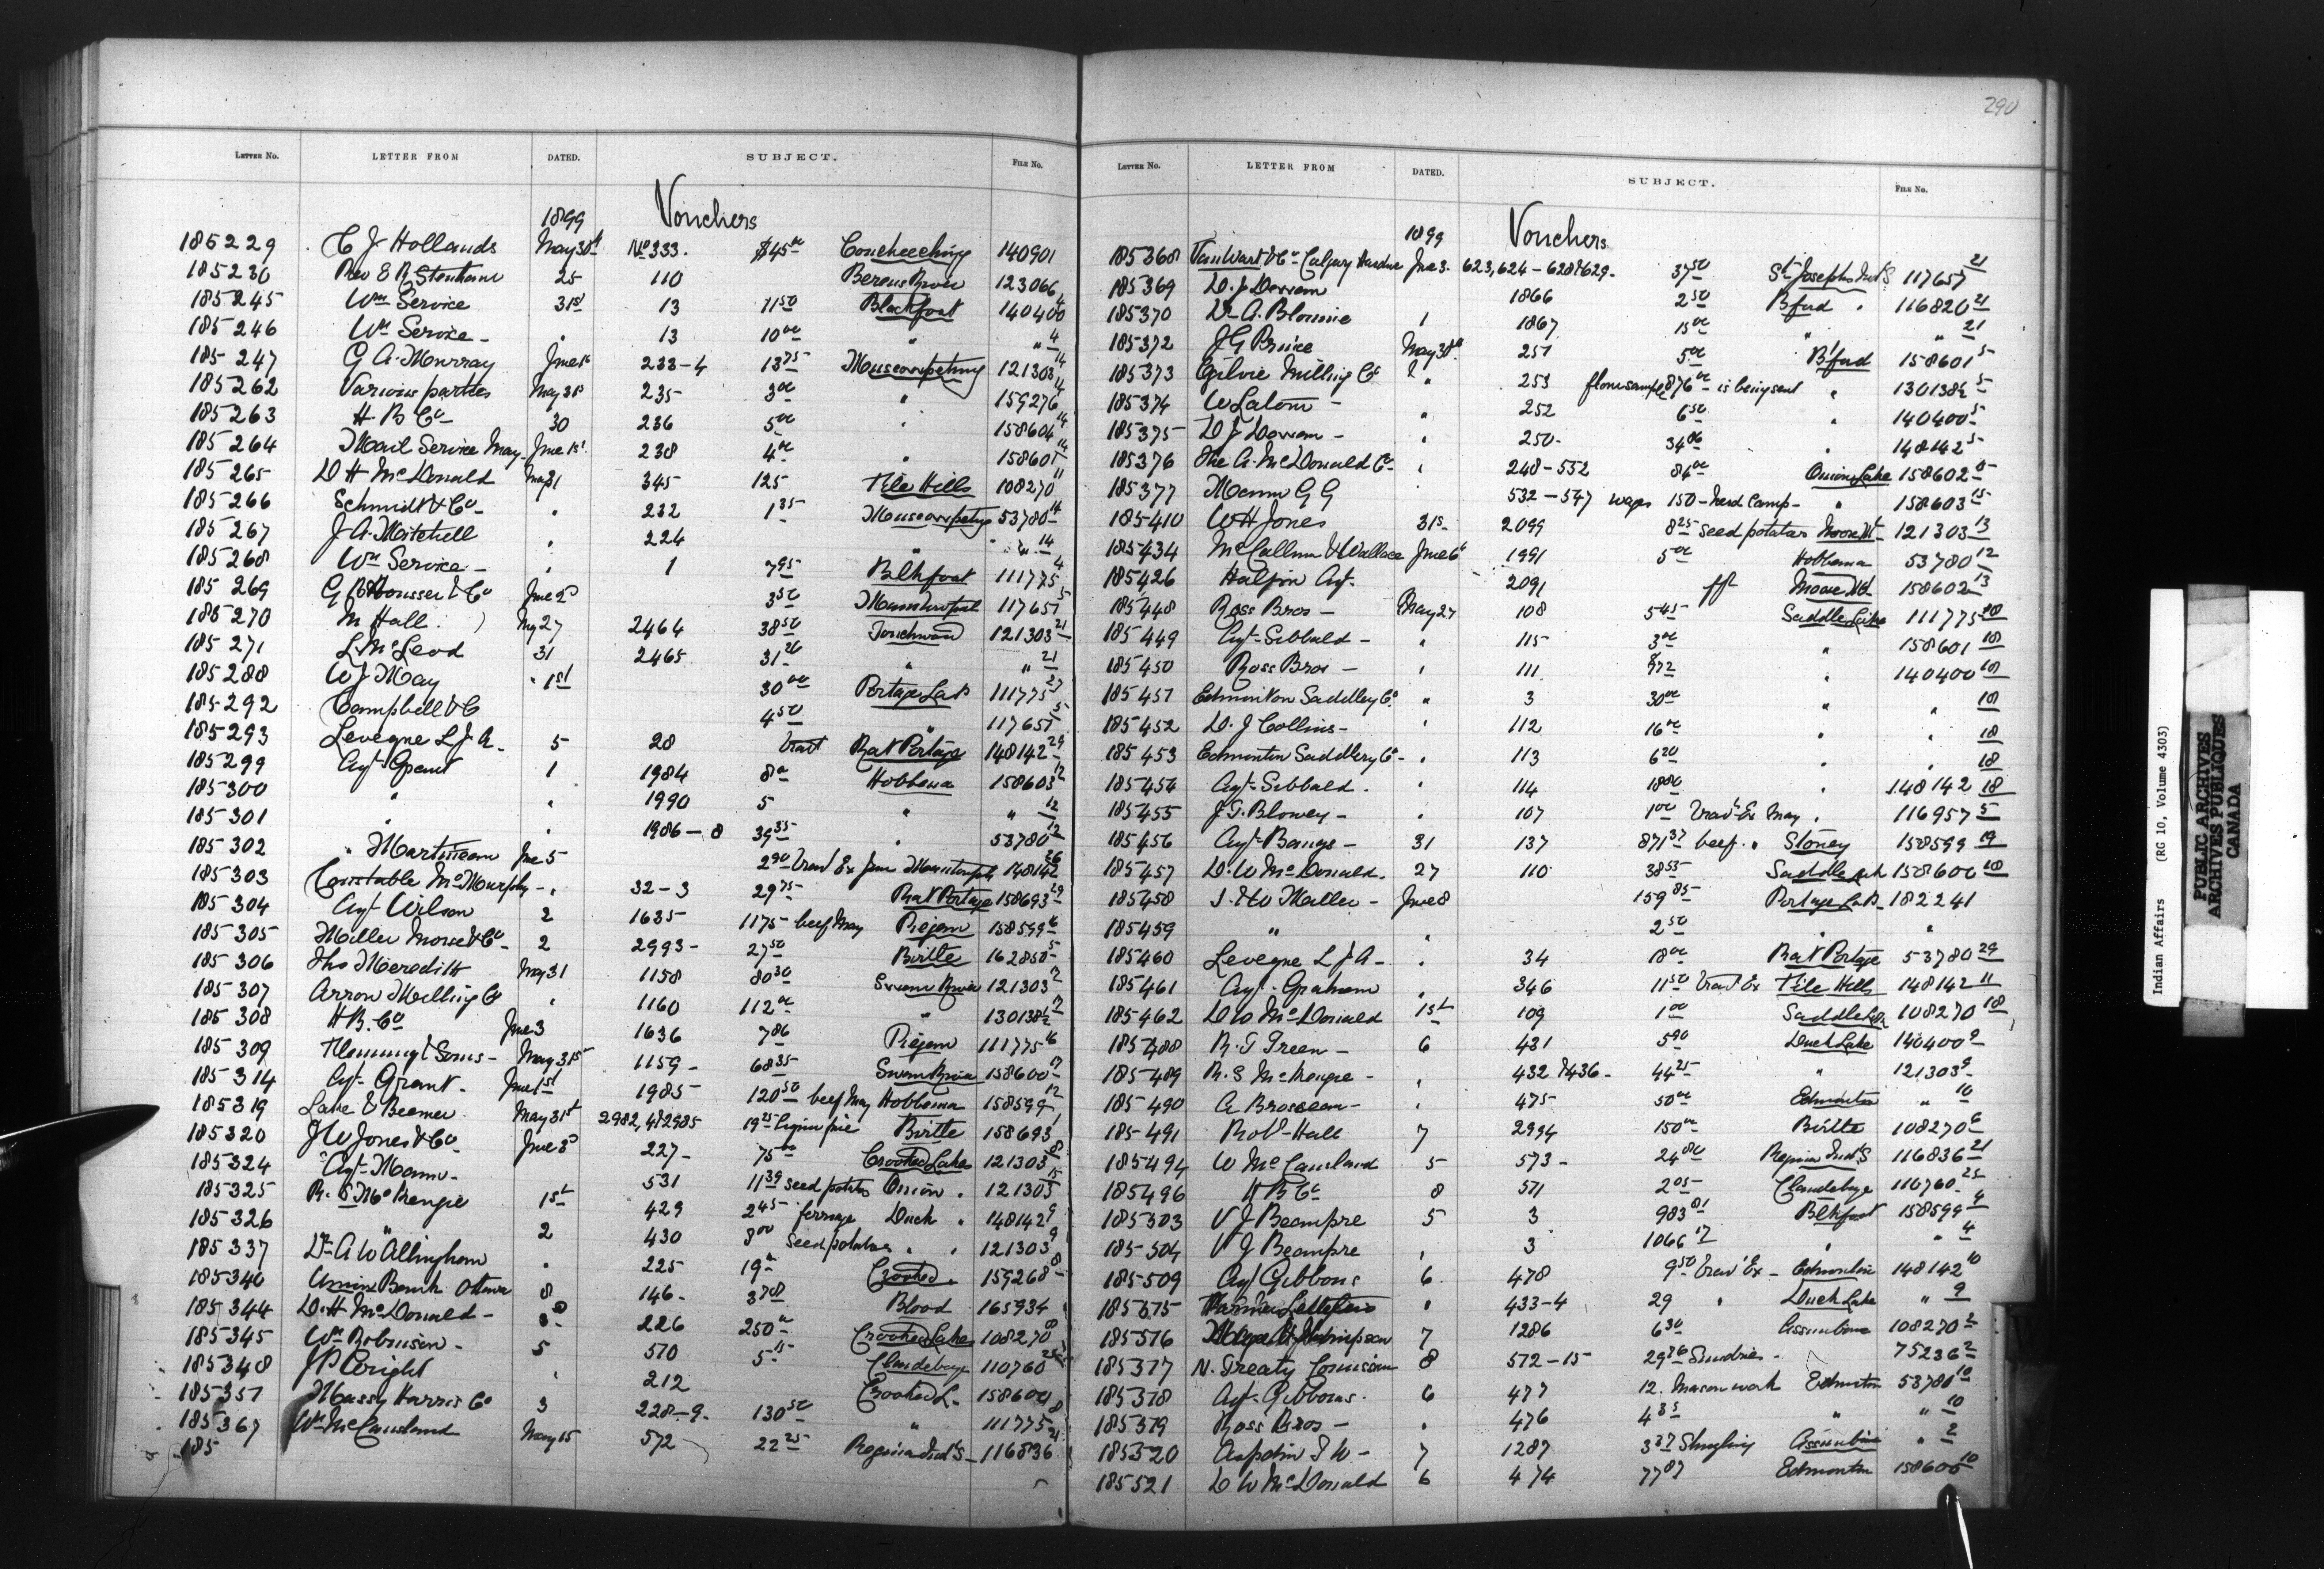 290
LETTER No. LETTER FROM DATED. SUBJECT. FILE No.
1899 Vouchers
185229 C J Hollands May 30th No 333. $45 00 Coucheeching 140901
185230 Rev E R Stenham 25 110 Berens River 123066
185245 Wm Service 31st 13 11 50 Blackfoot 140400 4
185246 Wm Service - " 13 10 00 " " 4
185247 G A Murray June 1st 233-4 13 75 Muscowpetung 121303 14
185262 Various parties May 31st 235 3 00 " 159276 14
185263 H B Co 30 236 5 00 " 158604 14
185264 Mail Service May June 1st 238 4 00 " 158601 14
185265 D H McDonald May 31 345 125 File Hills 108270 11
185266 Schmidt & Co - " 232 1 35 Muscowpetung 53780 14
185267 J A Mitchell " 224 " " 14
185268 Wm Service - " 1 7 95 Blkfoot 111775 4
185269 & Co June 2d 3 50 117657 5
185270 M Hall May 27 2464 38 50 Touchwood 121303 21
185271 L McLeod 31 2465 31 26 " " 21
185288 W J May " 1st 30 00 Portage La P 111775 27
185292 Campbell & C 4 50 " 117657 5
185293 Leveque L J A - 5 28 travl Rat Portage 148142 29
185299 Agt Grant 1 1984 8 00 Hobbema 158603 12
185300 " " 1990 5 " " 12
185301 " " 1986-8 39 35 " 53780 12
185302 " Martineau June 5 2 90 travl Ex June 148142 26
185303 Constable McMurphy - " 32-3 29 75 Rat Portage 158693 29
185304 Agt Wilson 2 1635 1175 beef May Piegan 158599 16
185305 Miller Morse & Co - 2 2993 - 27 50 Birtle 162850 5
185306 Thos Meredith May 31 1158 80 30 Swan River 121303 17
185307 Arrow Milling Co " 1160 112 00 " 130138½ 17
185308 H B. Co June 3 1636 7 86 Piegan 111775 16
185309 Flemming & Sons - May 31st 1159 - 68 35 Swan River 158600 17
185314 Agt Grant - June 1st 1985 120 50 beef May Hobbema 158599 12
185319 Lake & Beemer May 31st 2982, 4 & 2985 19 25 Birtle 158693
185320 J W Jones & Co June 3d 227 - 75 00 Crooked Lakes 121303 8
185324 Agt Mann - 531 11 39 seed potatos Onion " 121303 15
185325 R. S McKenzie 1st 429 2 45 ferriage Duck " 148142 9
185326 " 2 430 8 00 Seed potatoes " " 121303 9
185337 Dr A W Allingham " 225 19 00 Crooked " 159268 8
185340 Union Bank Ottawa 8 146 - 3 78 Blood 165934
185344 D. H McDonald - 3 226 250 00 Crooked Lakes 108270 8
185345 Wm Robinson - 5 570 5 15 Clandeboye 110760 25
185348 J P Wright " 212 Crooked L. 158604 8
185351 Massy Harris Co 3 228-9 - 130 50 " 111775 8
185367 Wm McCausland May 15 572 22 25 Regina Ind'l S - 116836 21
185
LETTER No. LETTER FROM DATED. SUBJECT. FILE No.
1899 Vouchers
185368 VanWart & Co Calgary Hardware June 3. 623, 624 - 628 & 629 - 37 50 St Josephs Ind S 117657 21
185369 D. J Dorvan 1866 2 50 Bford " 116820 21
185370 Dr A. Blouin 1 1867 15 00 " " 21
185372 J G Prince May 30th 251 5 00 B'ford 158601 5
185373 Ogilvie Milling Co 2 " 253 flour sample 876 00 is being sent " 130138½ 5
185374 W Latour - " 252 6 50 " 140400 5
185375 D J Dorvan - " 250 - 34 06 " 148142 5
185376 The A. McDonald Co - " 248-532 84 00 Onion Lake 158602 15
185377 Mann G G 532-547 wages 150 - herd Camp - " 158603 15
185410 W H Jones 31st 2099 8 25 seed potatoes Moose Mt 121303 13
185434 McCallum & Wallace June 6th 1991 5 00 Hobbema 53780 12
185426 Halpin Agt - 2091 Moose Mt 158602 13
185448 Ross Bros - May 27 108 5 45 Saddle Lake 111775 18
185449 Agt Sibbald - " 115 3 00 " 158601 18
185450 Ross Bros - " 111 " 140400 18
185451 Edmonton Saddlery Co " 3 30 00 " " 18
185452 D. J Collins - " 112 16 00 " " 18
185453 Edmonton Saddlery Co - " 113 6 20 " " 18
185454 Agt Sibbald. " 114 18 80 " 148142 18
185455 J. T. Blowey - " 107 1 00 travl Ex May " 116957 5
185456 Agt Bangs - 31 137 871 37 beef " Stoney 158599 19
185457 D. W McDonald. 27 110 38 55 Saddle Lake 158600 18
185458 J. & W Miller - June 8 159 85 Portage La P. 182241
185459 " " 2 50 " "
185460 Leveque L J A - " 34 18 00 Rat Portage 53780 29
185461 Agt - Graham " 346 11 50 travl Ex File Hills 148142 11
185462 D W McDonald 1st 109 1 00 Saddle Lk 108270 18
185488 R. T Green - 6 431 5 90 Duck Lake 140400 9
185489 R. S McKenzie - " 432 & 436 - 44 25 " 121303 9
185490 A Brosseau - " 475 50 00 Edmonton " 10
185491 Robt Hall 7 2994 150 00 Birtle 108270 6
185494 W McCausland 5 573 - 24 80 Regina Ind'l S 116836 21
185496 H B Co 8 571 2 05 Clandeboye 110760 25
185503 V J Beaupre 5 3 983 81 Blkfoot 158599 4
185504 V J Beaupre " 3 1066 17 " " 4
185509 Agt Gibbons 6 478 9 50 travl Ex - Edmonton 148142 10
185515 " 433-4 29 " Duck Lake " 9
185516 Thompson 7 1286 6 30 Assiniboine 108270 2
185517 N. Treaty Comission 8 572-15 29 76 Sundries - 75236 2
185518 Agt - Gibbons. 6 477 12. Mason work Edmonton 53780 10
185519 Ross Bros - " 476 4 35 " " 10
185520 Aspdin T W - 7 1287 3 37 Shingling Assiniboine " 2
185521 D W McDonald 6 474 77 87 Edmonton 158600 10
Indian Affairs (RG 10, Volume 4303)
PUBLIC ARCHIVES
ARCHIVES PUBLIQUES
CANADA